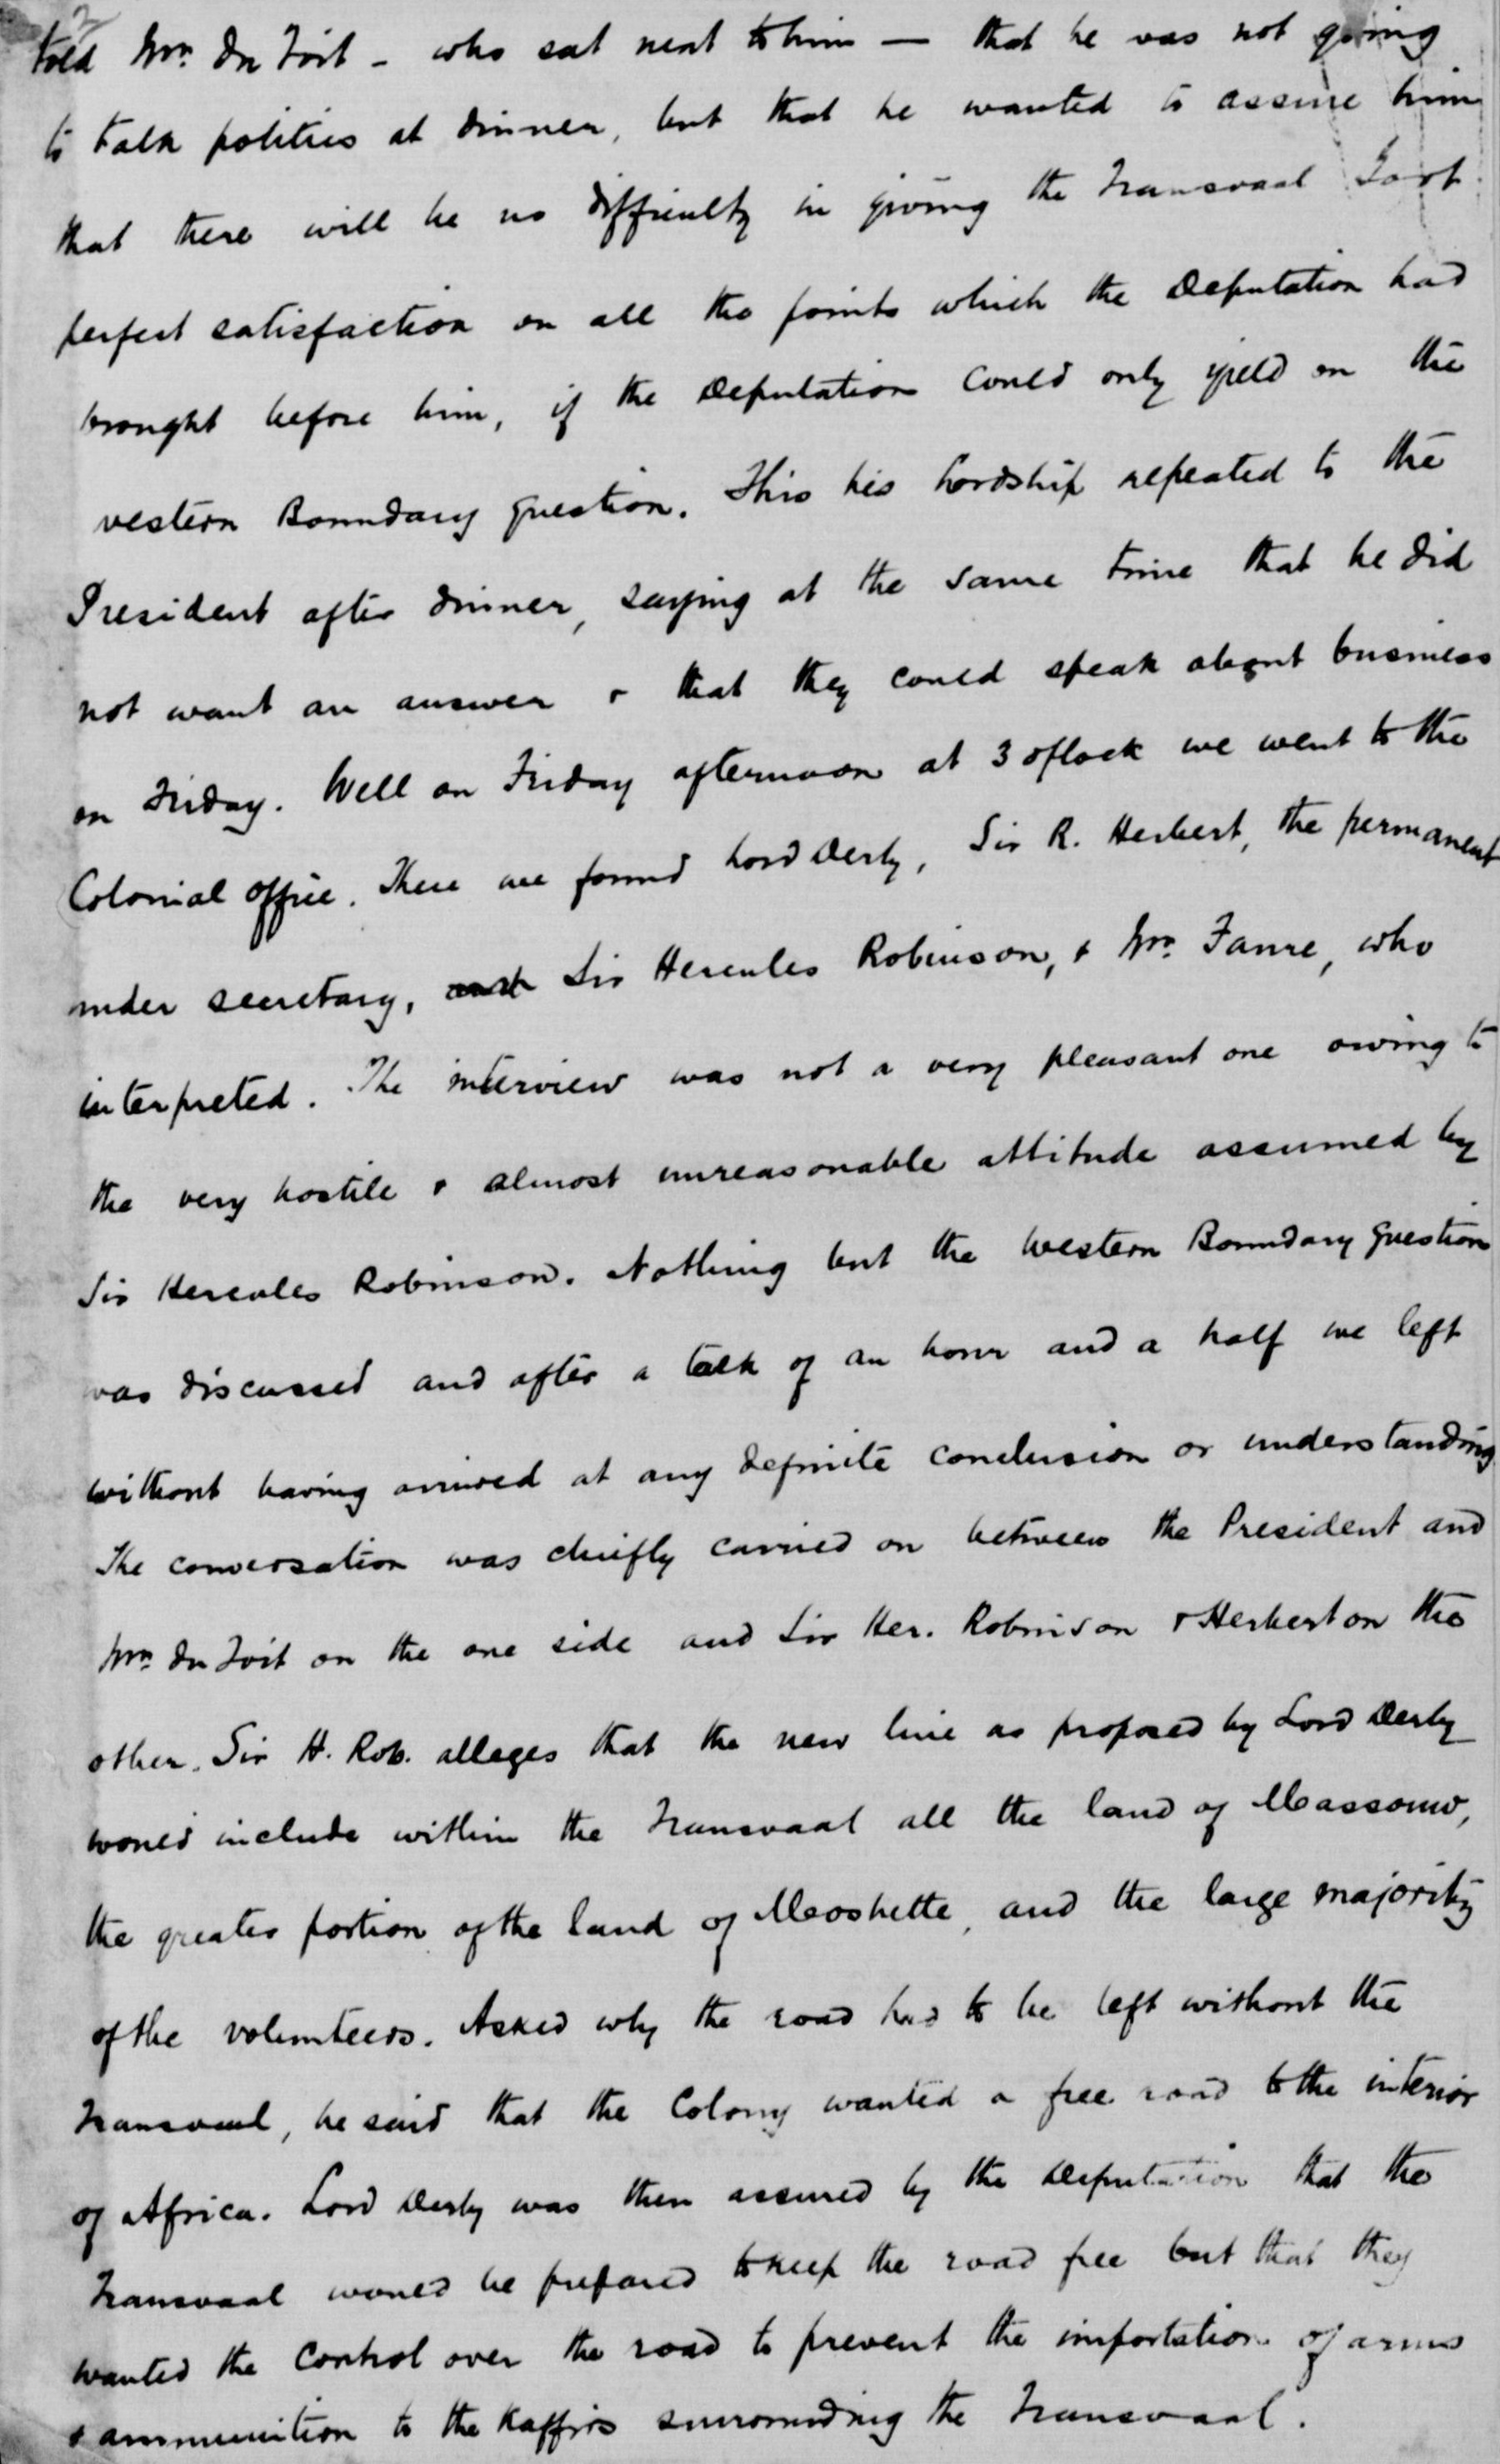 2
told Mr. Du Toit - who sat next to him — that he was not going
to talk politics at dinner, but that he wanted to assure him
that there will be no difficulty in giving the Transvaal Govt.
perfect satisfaction on all the points which the Deputation had
brought before him, if the Deputation could only yield on the
western Boundary question. This his Lordship repeated to the
President after dinner, saying at the same time that he did
not want an answer & that they could speak about business
on Friday. Well on Friday afternoon at 3 o'clock we went to the
Colonial Office. There we found Lord Derby, Sir R. Herbert, the permanent
under secretary, Sir Hercules Robinson, & Mr. Faure, who
interpreted. The interview was not a very pleasant one owing to
the very hostile & almost unreasonable attitude assumed by
Sir Hercules Robinson. Nothing but the Western Boundary question
was discussed and after a talk of an hour and a half we left
without having arrived at any definite conclusion or understanding
The conversation was chiefly carried on between the President and
Mr. Du Toit on the one side and Sir Her. Robinson & Herbert on the
other. Sir H. Rob. alleges that the new line as proposed by Lord Derby
would include within the Transvaal all the land of Massouw,
the greater portion of the land of Moshette, and the large majority
of the volunteers. Asked why the road had to be left without the
Transvaal, he said that the Colony wanted a free road to the interior
of Africa. Lord Derby was then assured by the Deputation that the
Transvaal would be prepared to keep the road free but that they
wanted the control over the road to prevent the importation of arms
& ammunition to the Kaffirs surrounding the Transvaal.